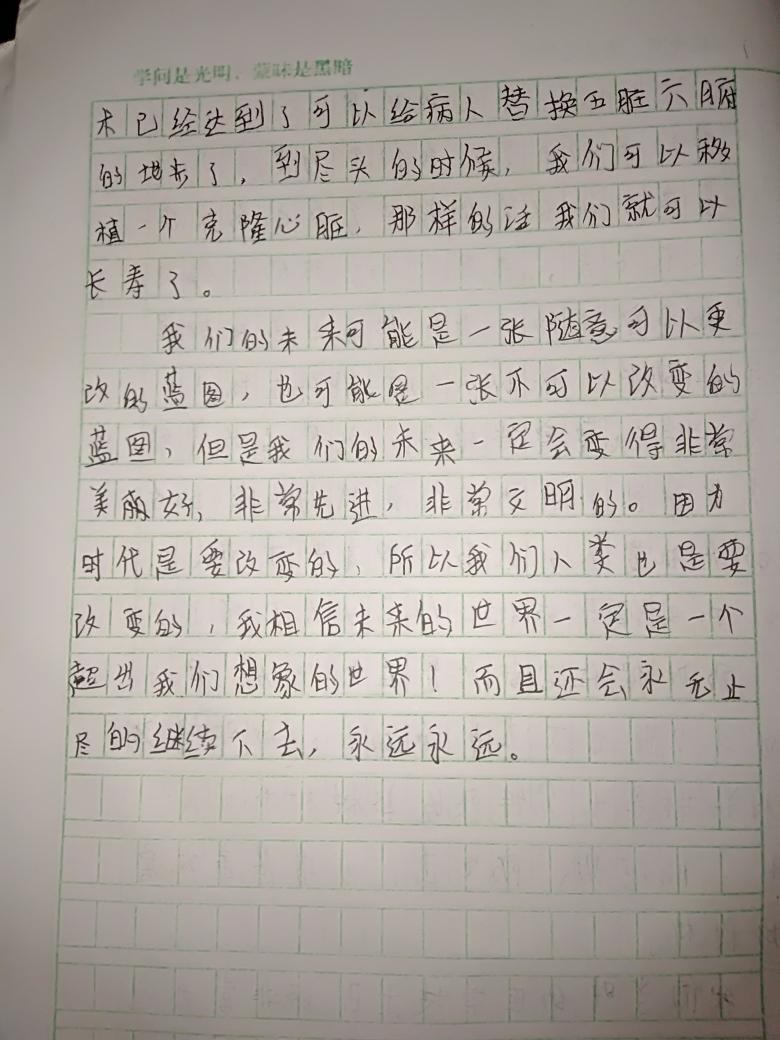 学问是光明，蒙昧是黑暗
术已经达到了可以给病人替换五脏六腑
的地步了，到尽头的时候，我们可以移
植一个克隆心脏，那样的话我们就可以
长寿了。
我们的未来可能是一张随意可以更
改的蓝图，也可能是一张不可以改变的
蓝图，但是我们的未来一定会变得非常
美丽好，非常先进，非常文明的。因为
时代是要改变的，所以我们人类也是要
改变的，我相信未来的世界一定是一个
超出我们想象的世界！而且还会永无止
尽的继续下去，永远永远。